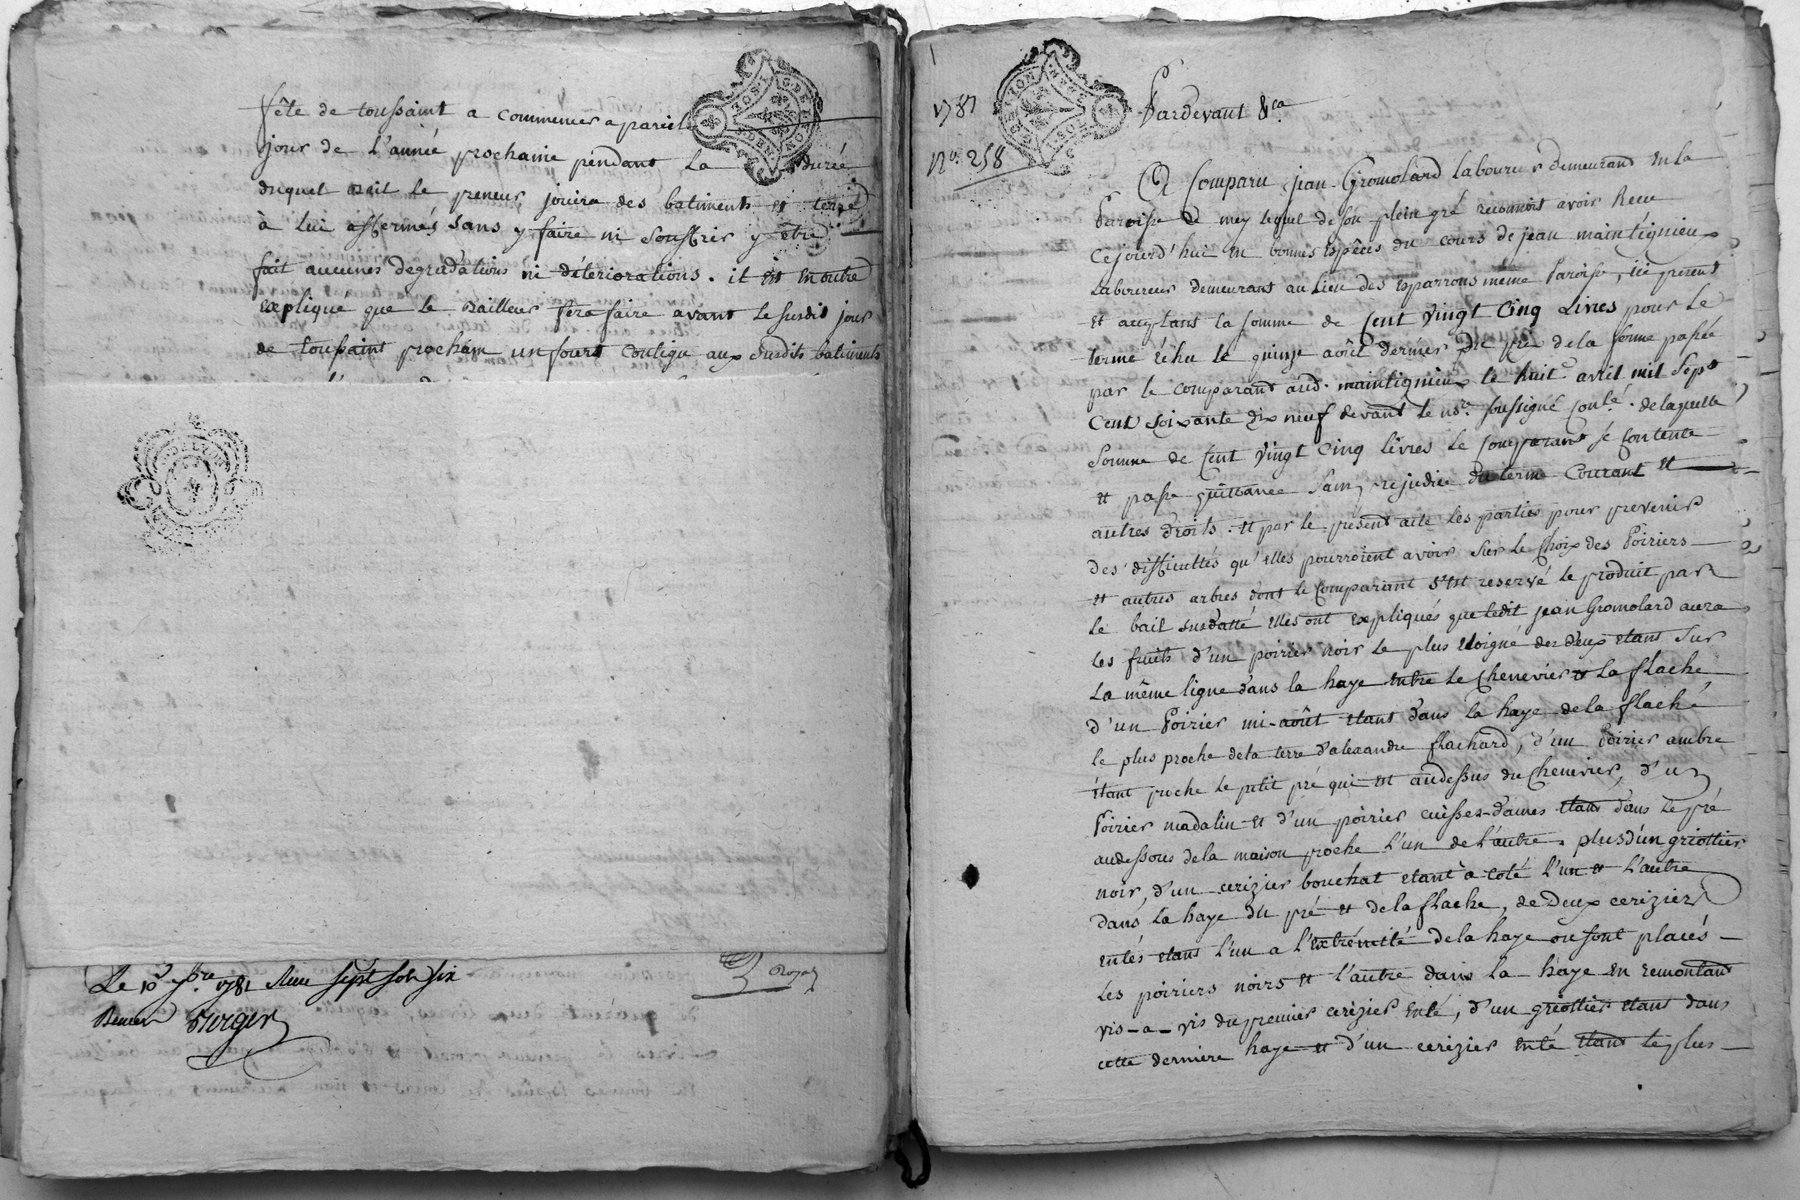 fête de toussaint a commencer a pareil
jour de l'année prochaine pendant la durée
duquel Bail le preneur jouira des batiments et terre
à lui affermés sans y faire ni souffrir y être
fait aucunes dégradations ni déteriorations. il est en outre
expliqué que le Bailleur fera faire avant le susdit jour
de toussaint prochain un four contigu aux susdits batiments
Le 10 7bre 1781 Reçu sept sols six
Deniers
1781
No. 258
Pardevant &ca
A Comparu jean Gromolard laboureur demeurant en la
Paroisse de mey lequel de son plein gré reconnoit avoir Reçu
Cejourd'hui en bonnes Espèces du cours de jean maintignieux
Laboureur demeurant au lieu des Esparrons même Paroisse, ici present
et acceptant la somme de Cent Vingt Cinq Livres pour le
terme échu le quinze août dernier du prix de la ferme passée
par le comparant aud. maintignieux le huit avril mil Sept
Cent Soixante dix neuf devant le nre. soussigné Conlé. de laquelle
Somme de Cent Vingt Cinq livres le Comparant se Contente
et passe quittance sans prejudice du terme Courant et
autres droits. et par le present acte les parties pour prevenir
des difficultés qu'elles pourroient avoir sur le Choix des Poiriers
et autres arbres dont le Comparant s'est reservé le produit par
le bail susdatté elles ont expliqués que ledit jean Gromolard aura
les fruits d'un poirier noir le plus eloigné des deux etant sur
la même ligne dans la haye entre le Chenevier et la flache
d'un Poirier mi-août etant dans la haye de la flache
le plus proche de la terre d'alexandre flachard, d'un poirier ambre
étant proche le petit pré qui est audessus du Chenevier, d'un
Poirier madalin et d'un poirier cuisses-dames etant dans le pré
audessous de la maison proche l'un de l'autre. plus d'un griottier
noir, d'un cerizier bouchat etant à coté l'un et l'autre
dans la haye du pré et de la flache, de Deux ceriziers
entés etant l'un a l'extrémité de la haye où sont placés
les poiriers noirs et l'autre dans la haye en remontant
vis-a-vis du premier cerizier enté, d'un griottier etant dans
cette derniere haye et d'un cerizier enté etant le plus